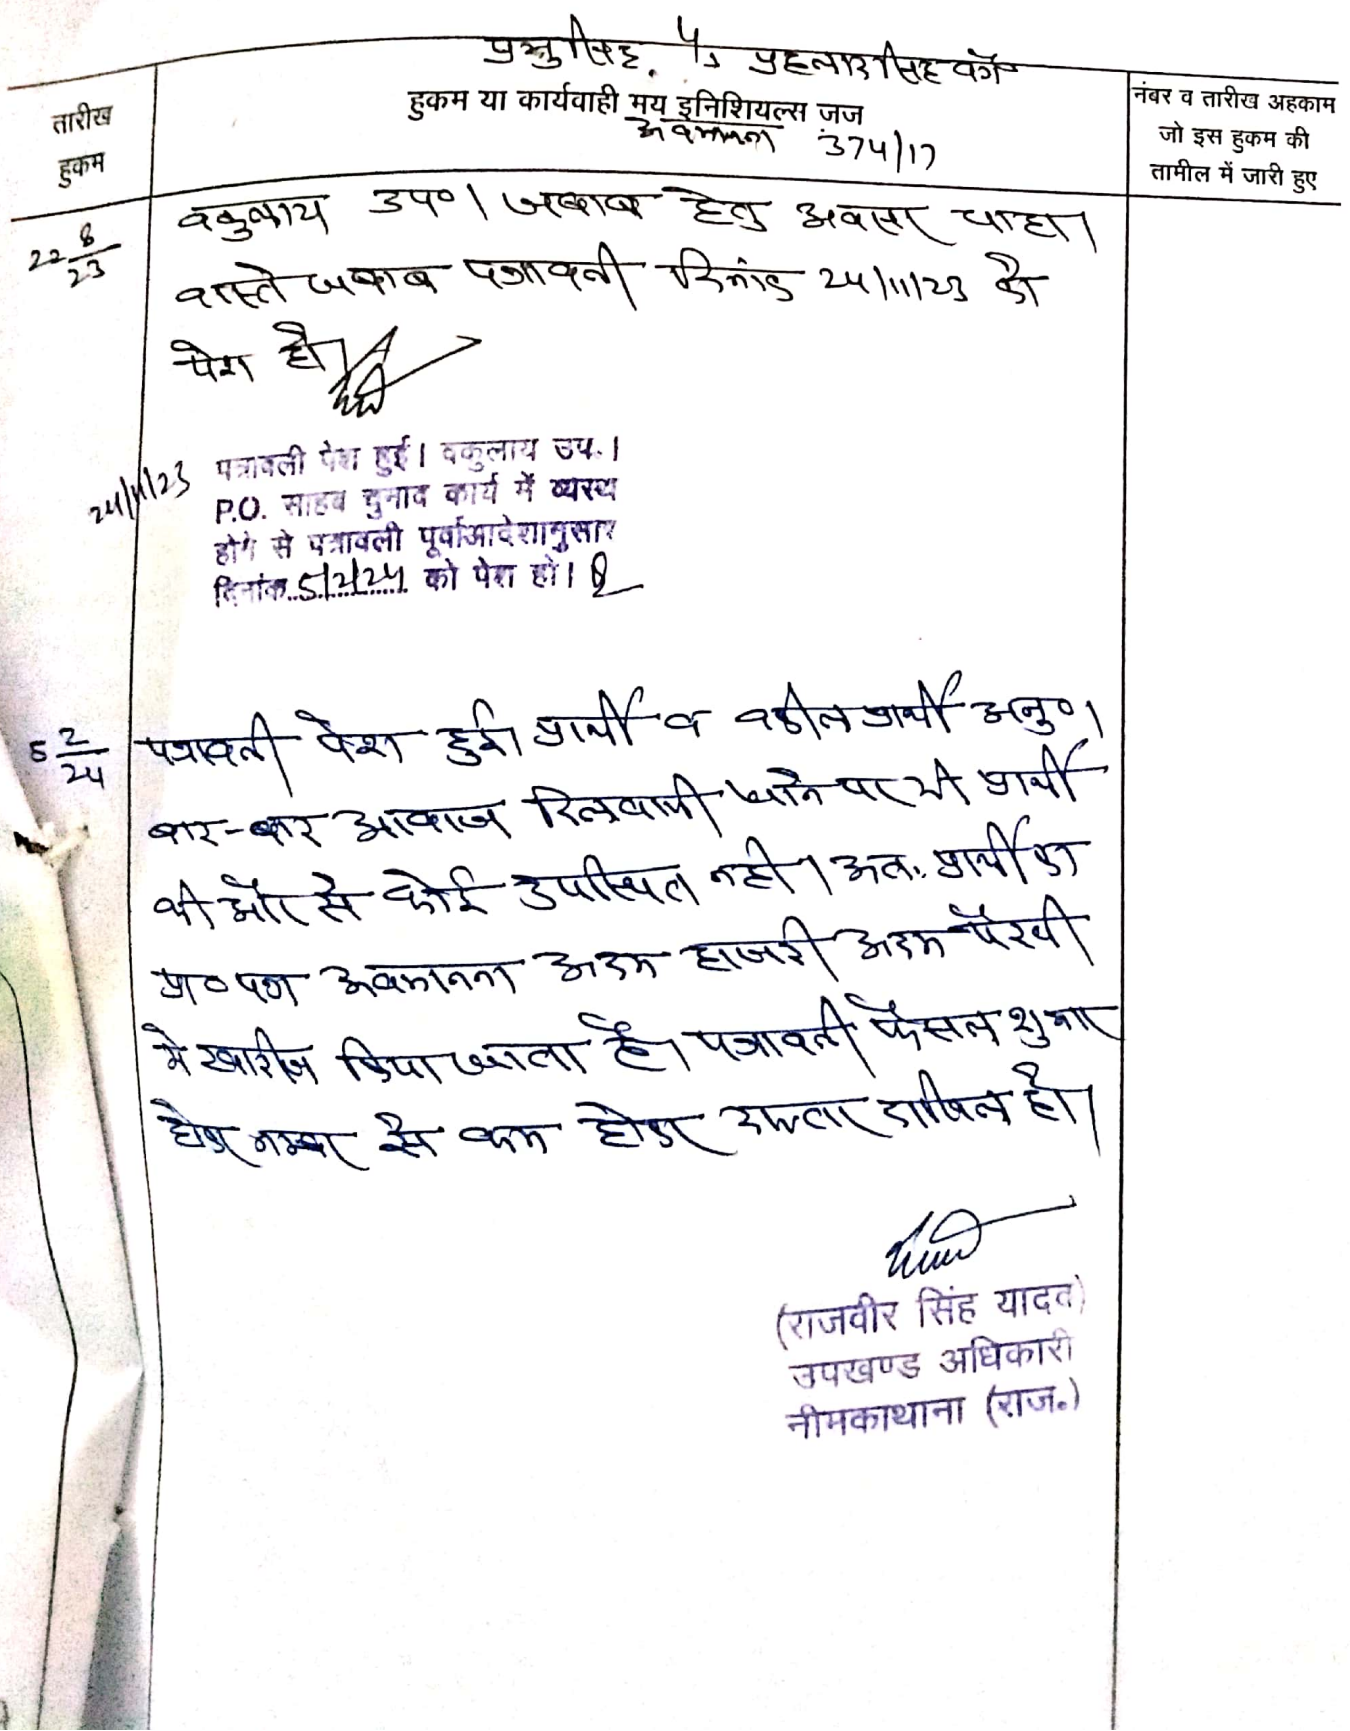 प्रभुसिंह. V/s प्रहलादसिंह वगै०
तारीख
हुकम
हुकम या कार्यवाही मय इनिशियल्स जज
अवमानना 374/17
नंबर व तारीख अहकाम
जो इस हुकम की
तामील में जारी हुए
22 8/23
वकुलाय उप०। जवाब हेतु अवसर चाहा।
वास्ते जवाब पत्रावली दिनांक 24/11/23 को
पेश हो।
24/11/23
पत्रावली पेश हुई। वकुलाय उप.।
P.O. साहब चुनाव कार्य में व्यस्थ
होने से पत्रावली पूर्वाआदेशानुसार
दिनांक..5/2/24.. को पेश हो।
5 2/24
पत्रावली पेश हुई। प्रार्थी व वकील प्रार्थी अनु०।
बार-बार आवाज दिलवायी जाने पर भी प्रार्थी
की और से कोई उपस्थित नही। अतः प्रार्थी का
प्रा० पत्र अवमानना अदम हाजरी अदम पैरवी
मे खारीज किया जाता है। पत्रावली फैसल शुमार
होकर नम्बर से कम होकर दफ्तर दाखिल हो।
(राजवीर सिंह यादव)
उपखण्ड अधिकारी
नीमकाथाना (राज.)